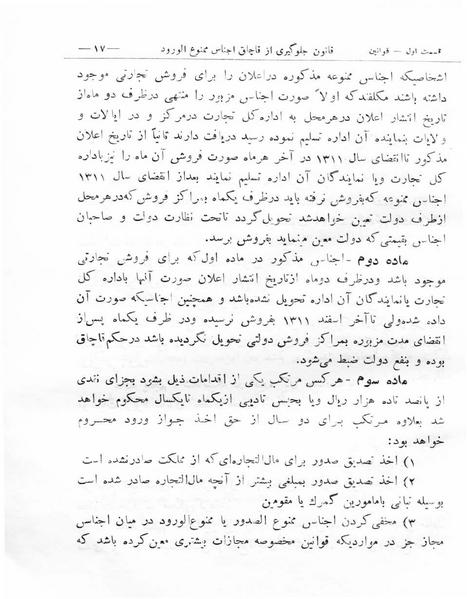 قسمت اول — قوانین    قانون جلوگیری از قاچاق اجناس ممنوع الورود    —۱۷—
اشخاصیکه اجناس ممنوعه مذکوره دراعلان را برای فروش تجارتی موجود
داشته باشند مکلفند که اولاً صورت اجناس مزبور را منتهی درظرف دو ماه از
تاریخ انتشار اعلان درهرمحل به اداره کل تجارت درمرکز و در ایالات و
ولایات بنماینده آن اداره تسلیم نموده رسید دریافت دارند ثانیاً از تاریخ اعلان
مذکور تا انقضای سال ۱۳۱۱ در آخر هرماه صورت فروش آن ماه را نیز باداره
کل تجارت ویا نمایندگان آن اداره تسلیم نمایند بعداز انقضای سال ۱۳۱۱
اجناس ممنوعه که بفروش نرفته باید درظرف یکماه بمراکز فروش که درهرمحل
ازطرف دولت تعیین خواهدشد تحویل گردد تاتحت نظارت دولت و صاحبان
اجناس بقیمتی که دولت معین مینماید بفروش برسد.
ماده دوم - اجناس مذکور در ماده اول که برای فروش تجارتی
موجود باشد ودرظرف دوماه ازتاریخ انتشار اعلان صورت آنها باداره کل
تجارت یانمایندگان آن اداره تحویل نشده باشد و همچنین اجناسیکه صورت آن
داده شده ولی تاآخر اسفند ۱۳۱۱ بفروش نرسیده ودر ظرف یکماه پس از
انقضای مدت مزبوره بمراکز فروش دولتی تحویل نگردیده باشد درحکم قاچاق
بوده و بنفع دولت ضبط می‌شود.
ماده سوم - هرکس مرتکب یکی از اقدامات ذیل بشود بجزای نقدی
از پانصد تاده هزار ریال ویا بحبس تادیبی ازیکماه تایکسال محکوم خواهد
شد بعلاوه مرتکب برای دو سال از حق اخذ جواز ورود محروم
خواهد بود:
۱) اخذ تصدیق صدور برای مال‌التجاره‌ای که از مملکت صادرنشده است
۲) اخذ تصدیق صدور بمبلغی بیشتر از آنچه مال‌التجاره صادر شده است
بوسیله تبانی بامامورین گمرك یا مقومین
۳) مخفی کردن اجناس ممنوع الصدور یا ممنوع‌الورود در میان اجناس
مجاز جز در مواردیکه قوانین مخصوصه مجازات بیشتری معین کرده باشد که